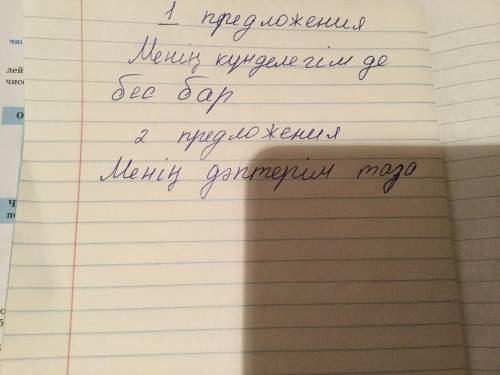 1 предложения
Менің күнделегім де
бес бар
2 предложения
Менің дәптерім таза